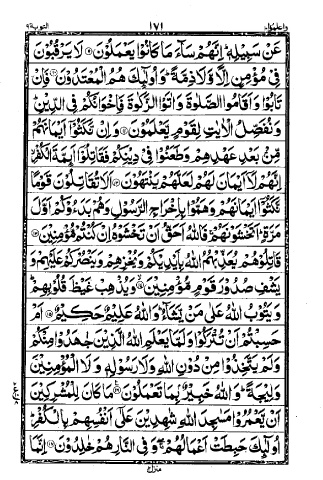 واعلموا١٠ ١٧١ التوبة٩
عَنْ سَبِيْلِهٖ اِنَّهُمْ سَآءَ مَا كَانُوْا يَعْمَلُوْنَ ۝٩ لَا يَرْقُبُوْنَ
فِيْ مُؤْمِنٍ اِلًّا وَّلَا ذِمَّةً وَاُولٰٓئِكَ هُمُ الْمُعْتَدُوْنَ ۝١٠ فَاِنْ
تَابُوْا وَاَقَامُوا الصَّلٰوةَ وَاٰتَوُا الزَّكٰوةَ فَاِخْوَانُكُمْ فِي الدِّيْنِ
وَنُفَصِّلُ الْاٰيٰتِ لِقَوْمٍ يَّعْلَمُوْنَ ۝١١ وَاِنْ نَّكَثُوْٓا اَيْمَانَهُمْ
مِّنْۢ بَعْدِ عَهْدِهِمْ وَطَعَنُوْا فِيْ دِيْنِكُمْ فَقَاتِلُوْٓا اَئِمَّةَ الْكُفْرِ
اِنَّهُمْ لَآ اَيْمَانَ لَهُمْ لَعَلَّهُمْ يَنْتَهُوْنَ ۝١٢ اَلَا تُقَاتِلُوْنَ قَوْمًا
نَّكَثُوْٓا اَيْمَانَهُمْ وَهَمُّوْا بِاِخْرَاجِ الرَّسُوْلِ وَهُمْ بَدَءُوْكُمْ اَوَّلَ
مَرَّةٍ اَتَخْشَوْنَهُمْ فَاللّٰهُ اَحَقُّ اَنْ تَخْشَوْهُ اِنْ كُنْتُمْ مُّؤْمِنِيْنَ ۝١٣
قَاتِلُوْهُمْ يُعَذِّبْهُمُ اللّٰهُ بِاَيْدِيْكُمْ وَيُخْزِهِمْ وَيَنْصُرْكُمْ عَلَيْهِمْ وَ
يَشْفِ صُدُوْرَ قَوْمٍ مُّؤْمِنِيْنَ ۝١٤ وَيُذْهِبْ غَيْظَ قُلُوْبِهِمْ
وَيَتُوْبُ اللّٰهُ عَلٰى مَنْ يَّشَآءُ وَاللّٰهُ عَلِيْمٌ حَكِيْمٌ ۝١٥ اَمْ
حَسِبْتُمْ اَنْ تُتْرَكُوْا وَلَمَّا يَعْلَمِ اللّٰهُ الَّذِيْنَ جٰهَدُوْا مِنْكُمْ
وَلَمْ يَتَّخِذُوْا مِنْ دُوْنِ اللّٰهِ وَلَا رَسُوْلِهٖ وَلَا الْمُؤْمِنِيْنَ
وَلِيْجَةً وَاللّٰهُ خَبِيْرٌۢ بِمَا تَعْمَلُوْنَ ۝١٦ مَا كَانَ لِلْمُشْرِكِيْنَ
اَنْ يَّعْمُرُوْا مَسٰجِدَ اللّٰهِ شٰهِدِيْنَ عَلٰٓى اَنْفُسِهِمْ بِالْكُفْرِ
اُولٰٓئِكَ حَبِطَتْ اَعْمَالُهُمْ وَفِي النَّارِ هُمْ خٰلِدُوْنَ ۝١٧ اِنَّمَا
منزل٢